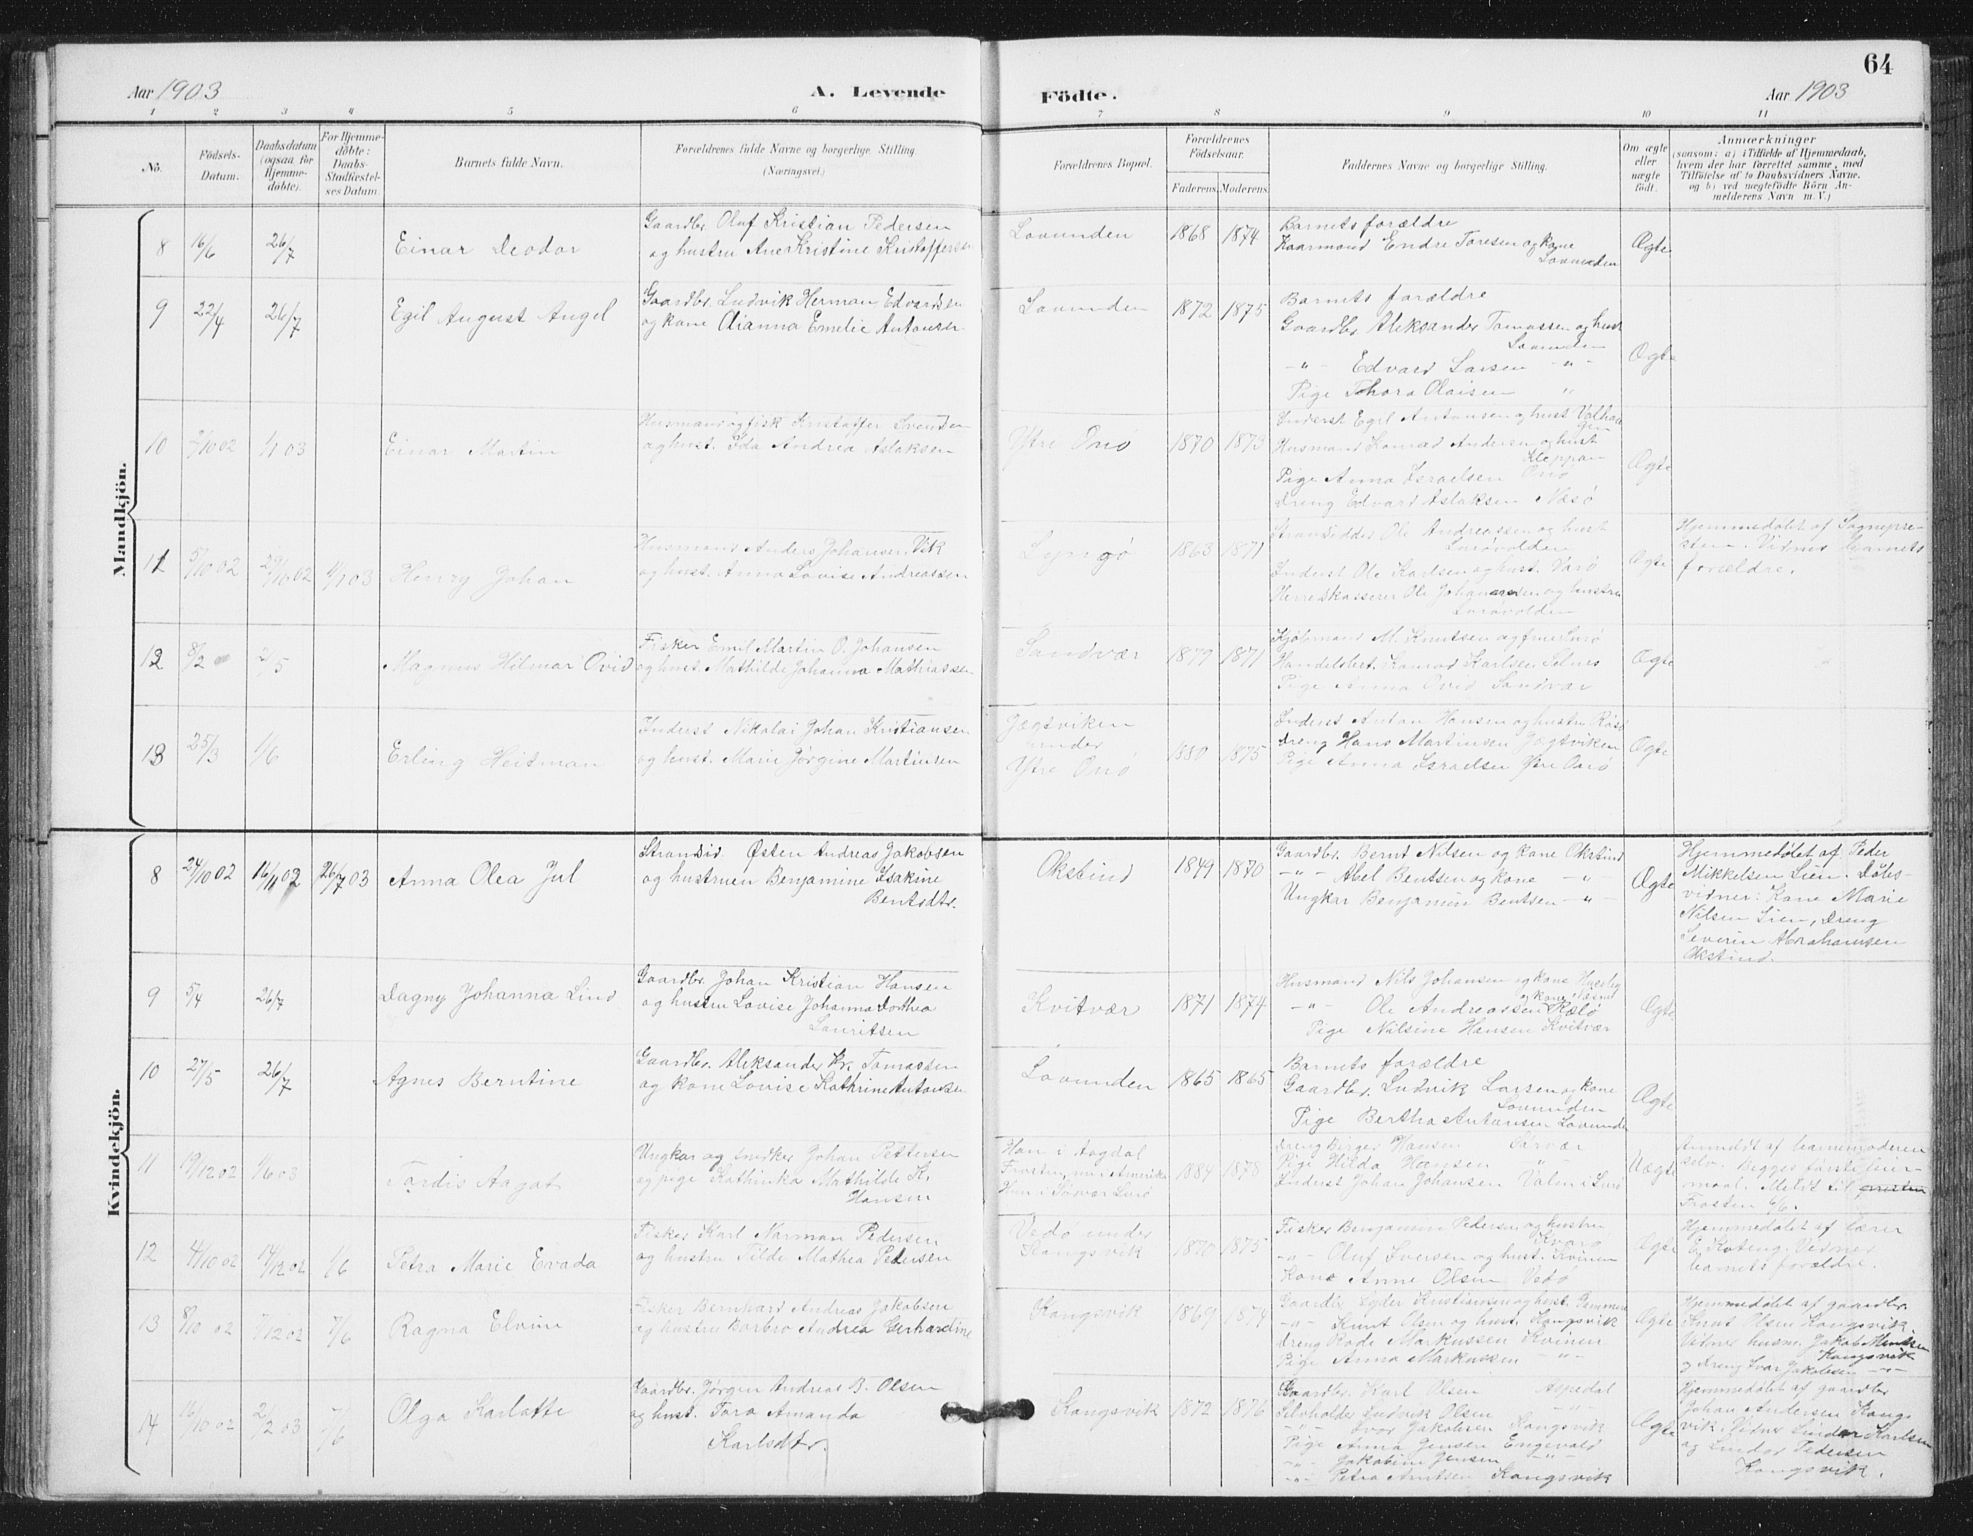 64
Aar 1903
A. Levende
Födte.
Aar 1903
1 2 3 4 5 6 7 8 9 10 11
No.
Födsels-Datum.
Daabsdatum (ogsaa for Hjemme-döbte).
For Hjemme-döbte: Daabs-Stadfæstel-ses Datum
Barnets fulde Navn.
Forældrenes fulde Navne og borgerlige Stilling.
(Næringsvei.)
Forældrenes Bopæl.
Forældrenes Födselsaar.
Faderens. Moderens.
Faddernes Navne og borgerlige Stilling.
Om ægte eller uægte födt.
Anmærkninger
(saasom: a) i Tilfælde af Hjemmedaab, hvem der har forrettet samme, med Tilföielse af to Daabsvidners Navne, og b) ved uægtefödte Börn An-melderens Navn m. V.)
Mandkjön.
8 16/6 26/7 Einar Deodor
Gaardbr. Oluf Kristian Pedersen
og hustru Ane Kristine Kristoffersen
Lovunden 1868 1874
Barnets forældre
Haarmand Endre Toresen og kone
Lovunden
Ægte
9 22/4 26/7 Egil August Angel
Gaardbr. Ludvik Herman Edvardsen
og kone Dianna Emelie Antonsen
Lovunden 1872 1875
Barnets forældre
Gaardbr. Aleksander Tomassen og hust
Lovunden
-"- Edvard Larsen -"-
Pige Thora Olaisen "
Ægte
10 1/1 03 Einar Martin
Husmand og fisk Kristoffer Svendsen
og hust. Ida Andrea Aslaksen
Ytre Onö 1870 1873
Inderst Egil Antonsen og hust
Husmand Konrad Andersen og hust
Kleppan
Pige Anna Israelsen Onö
dreng Edvard Aslaksen Næsö
Ægte
11 5/10 02 4/1 03 Henry Johan
Husmand Anders Johansen Vik
og hust. Anna Lovise Andreassen
Lyngö 1863 1871
Strandsidder Ole Andreassen og hust
Lurövolden
Inderst Ole Karlsen og hust. Varö
Herredskasserer Ole Johannessen og hustru
Lurövolden
Ægte
Hjemmedöbt af Sognepre-
sten. Vidner barnets
forældre.
12 8/2 2/5 Magnus Hilmar Ovid
Fisker Emil Martin O. Johansen
og hust. Mathilde Johanna Mathiassen
Sandvær 1879 1871
M. Knutsen og frue Lurö
Handelsbet. Konrad Karlsen Selnes
Pige Anna Ovid Sandvær
Ægte
13 25/3 1/6 Erling Heitman
Inderst Nikolai Johan Kristiansen
og hust. Marie Jörgine Martinsen
Jægtviken
under
Ytre Onö 1880 1875
Inderst Anton Hansen og hustru
dreng Hans Martinsen Jægtviken
Pige Anna Israelsen Ytre Onö
Ægte
Kvindekjön.
8 24/10 02 16/11 02 26/7 03 Anna Olea Jul
Strandsid. Østen Andreas Jakobsen
og hustruen Benjamine Isakine
Bentsdtr.
Okstind 1849 1870
Gaardbr. Bernt Nilsen og kone Okstind
-"- Abel Bentsen og kone -"-
Ungkar Benjamin Bentsen -"-
Ægte
Hjemmedöbt af Peder
Mikkelsen Lien. Döbs-
vidner: Kone Marie
Nilsen Lien, Dreng
Severin Abrahamsen
Okstind.
9 5/4 26/7 Dagny Johanna Lind
Gaardbr. Johan Kristian Hansen
og hustru Lovise Johanna Dorthea
Lauritsen
Kvitvær 1871 1874
Husmand Nils Johansen og kone
-"- Ole Andreassen
Pige Nilsine Hansen Kvitvær
Ægte
10 27/5 26/7 Agnes Berntine
Gaardbr. Aleksander Kr. Tomassen
og kone Lovise Kathrine Antonsen
Lovunden 1865 1865
Barnets forældre
Gaardbr. Ludvik Larsen og kone
Lovunden
Pige Bertha Antonsen Lovunden
Ægte
11 19/12 02 1/6 03 Tordis Aagot
Ungkar og snedker Johan Pettersen
og pige Kathinka Mathilde K.
Hansen
Han i Aagdal
nu i Amerika
Hun i Sörvær Lurö 1884 1878
dreng Birger Hansen Sörvær
Pige Hilda Hansen "
Inderst Johan Johansen Valen i Lurö
Uægte
Anmeldt af barnemoderen
selv. Begges förste leier-
maal. Meldt til
12 4/10 02 14/12 02 1/6 Petra Marie Evada
Fisker Karl Norman Pedersen
og hustru Tilde Mathea Pedersen
Vedö under
Kongsvik 1870 1875
Fisker Benjamin Pedersen og hustru
Kvarö
-"- Oluf Iversen og hust. Kvinen
Kone Anne Olsen Vedö
Ægte
Hjemmedöbt af lærer
E. Koteng. Vidner
barnets forældre.
13 8/10 02 7/12 02 7/6 Ragna Elvine
Fisker Bernhard Andreas Jakobsen
og hustru Barbro Andrea Gerhardine
Kongsvik 1869 1874
Gaardbr. Lyder Kristiansen og hust.
-"- Knut Olsen og hust. Kongsvik
dreng Rode Markussen Kvinen
Pige Anna Markussen -"-
Ægte
Hjemmedöbt af gaardbr.
Knut Olsen Kongsvik.
Vidner husm. Jakob
Kongsvik
og dreng Ivar Jakobsen -"-
14 16/10 02 2/2 03 7/6 Olga Karlotte
Gaardbr. Jørgen Andreas B. Olsen
og hust. Tora Amanda
Karlsdtr.
Kongsvik 1872 1876
Gaardbr. Karl Olsen Aspedal
Selvholder Ludvik Olsen -"-
-"- Ivar Jakobsen Kongsvik
Pige Anna Jensen Engevold
-"- Jakobine Jensen -"-
-"- Petra Arntsen Kongsvik
Ægte
Hjemmedöbt af gaardbr
Johan Andersen Kongs
vik. Vidner Karlsen
og Lindor Pedersen
Kongsvik.